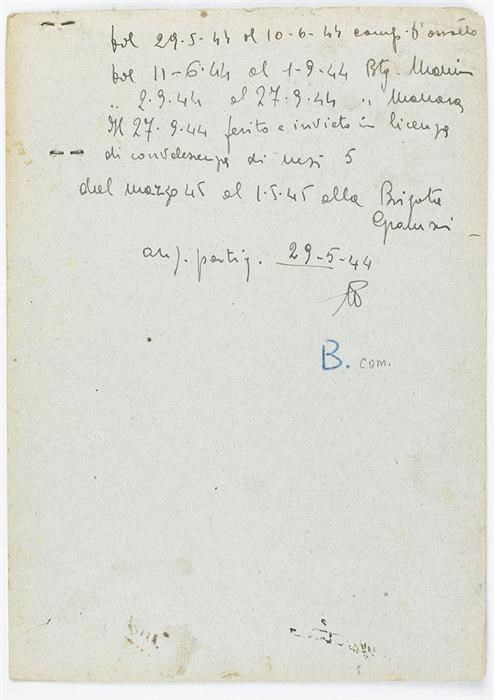 dal 29-5-44 al 10-6-44 comp. d'assalto
dal 11-6-44 al 1-9-44 Btg. Manin
„ 2.9.44 al 27.9.44 „ Manara
Il 27.9.44 ferito e inviato in licenza
di convalescenza di mesi 5
dal marzo 45 al 1.5.45 alla Brigata
Gramsci
anz. partig. 29-5-44
B. com.